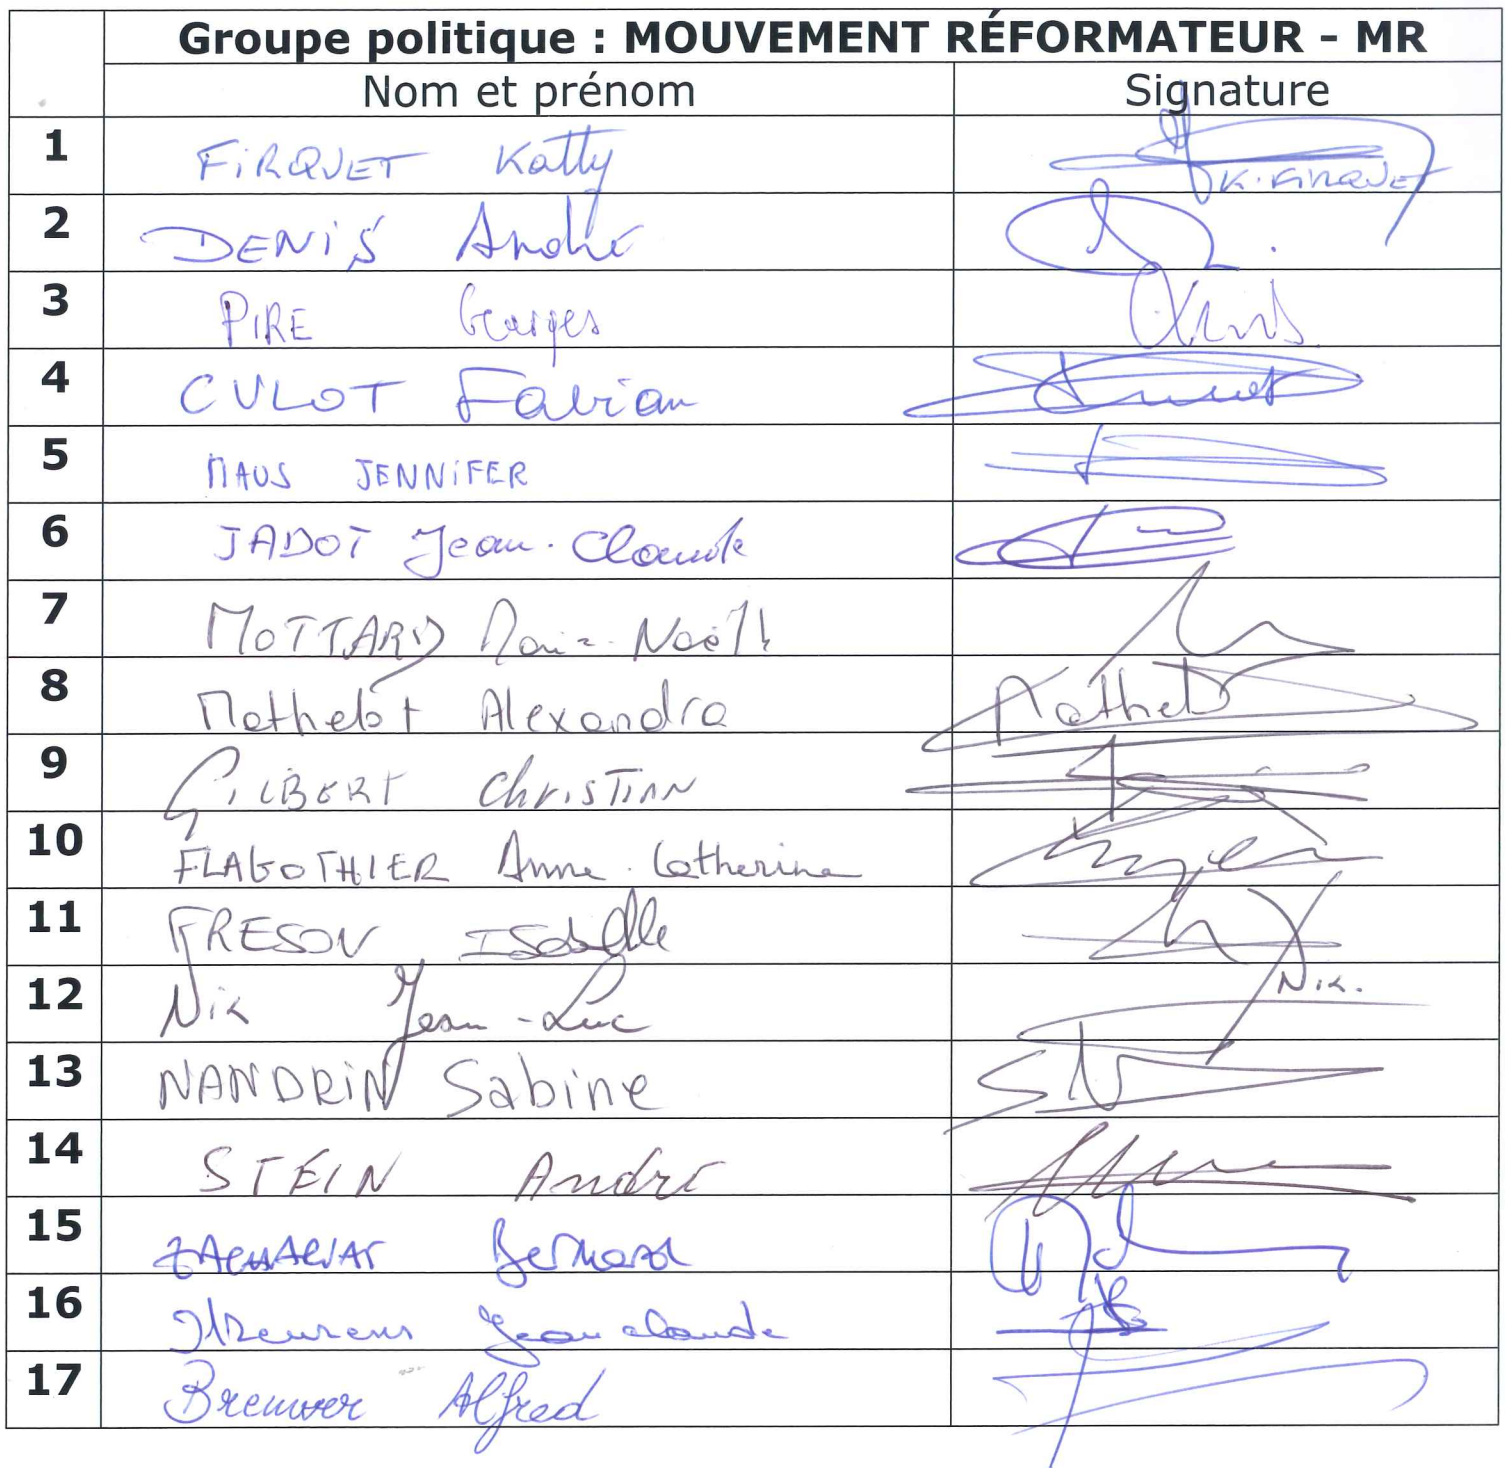 Groupe politique : MOUVEMENT RÉFORMATEUR - MR
Nom et prénom Signature
1 FIRQUET Katty K. FIRQUET
2 DENIS André
3 PIRE Georges
4 CULOT Fabian
5 MAUS JENNIFER
6 JADOT Jean-Claude
7 MOTTARD Marie-Noëlle
8 Mathelot Alexandra Mathelot
9 GILBERT CHRISTIAN
10 FLAGOTHIER Anne-Catherine
11 FRESON ISabelle
12 Nix Jean-Luc Nix.
13 NANDRIN Sabine
14 STEIN André
15 Bernard
16 Jean claude
17 Breuwer Alfred